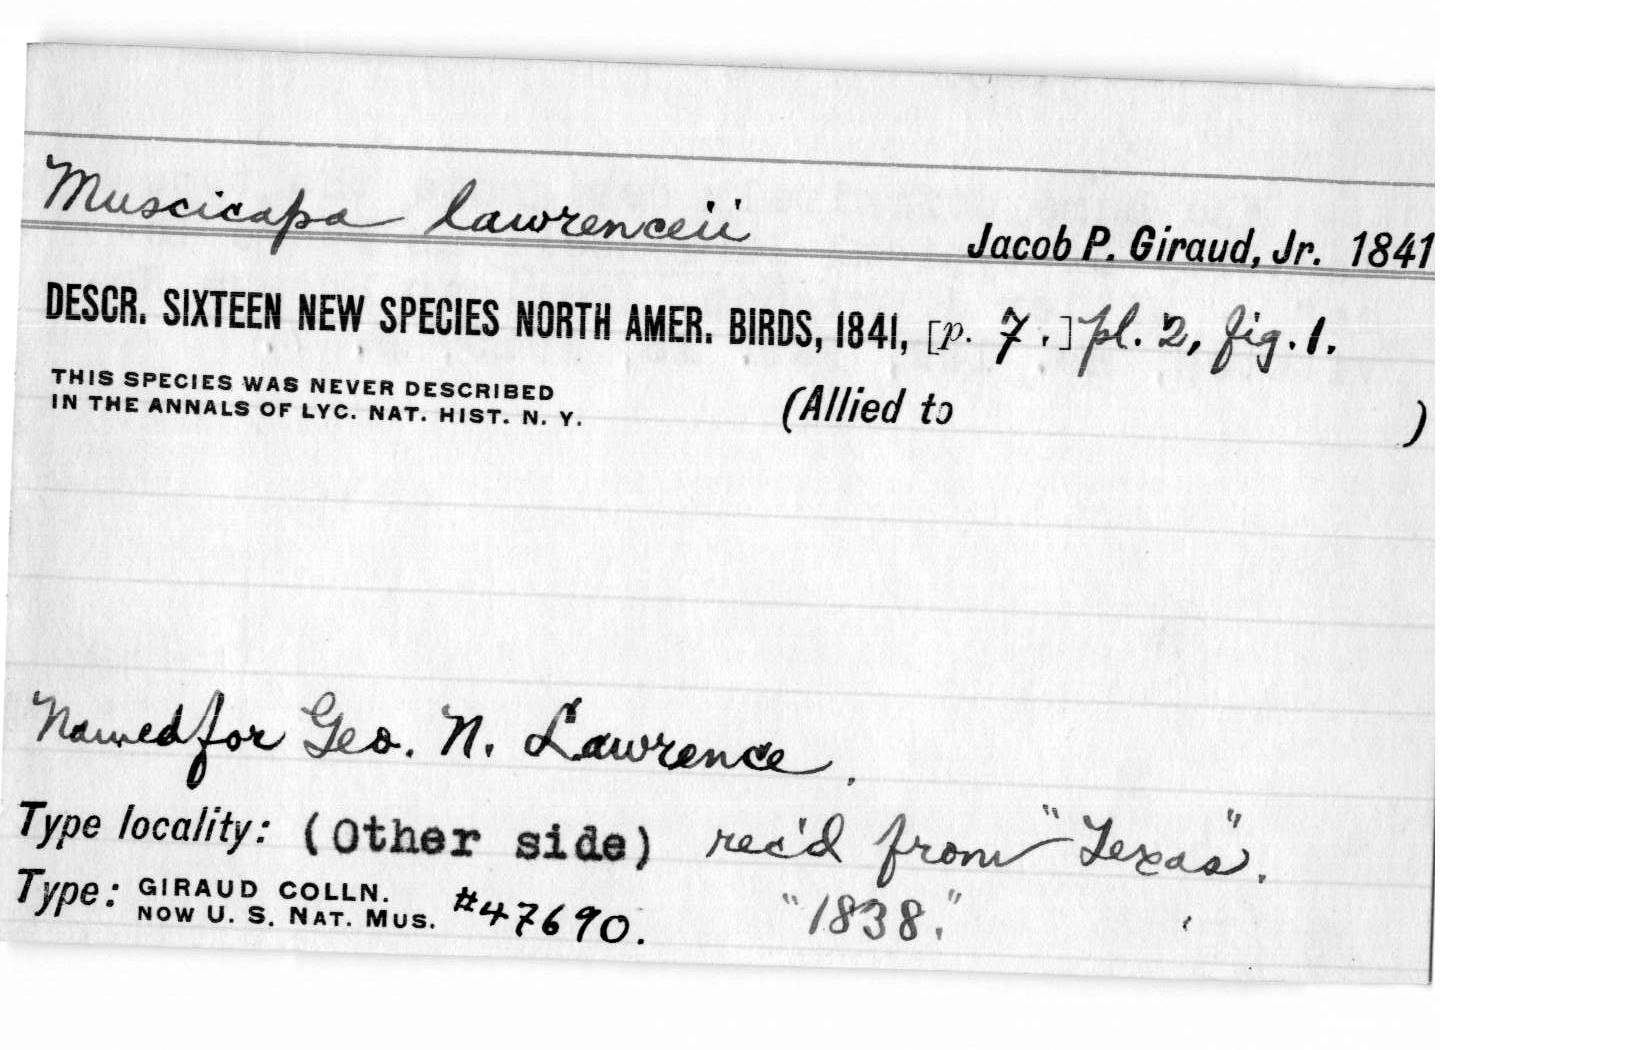 Muscicapa lawrenceii
Jacob P. Giraud, Jr. 1841
DESCR. SIXTEEN NEW SPECIES NORTH AMER. BIRDS, 1841, [p. 7.] pl. 2, fig. 1.
THIS SPECIES WAS NEVER DESCRIBED
IN THE ANNALS OF LYC. NAT. HIST. N. Y.
(Allied to )
Named for Geo. N. Lawrence.
Type locality: (Other side) rec'd from "Texas".
Type: GIRAUD COLLN.
NOW U. S. NAT. MUS. #47690.
"1838."